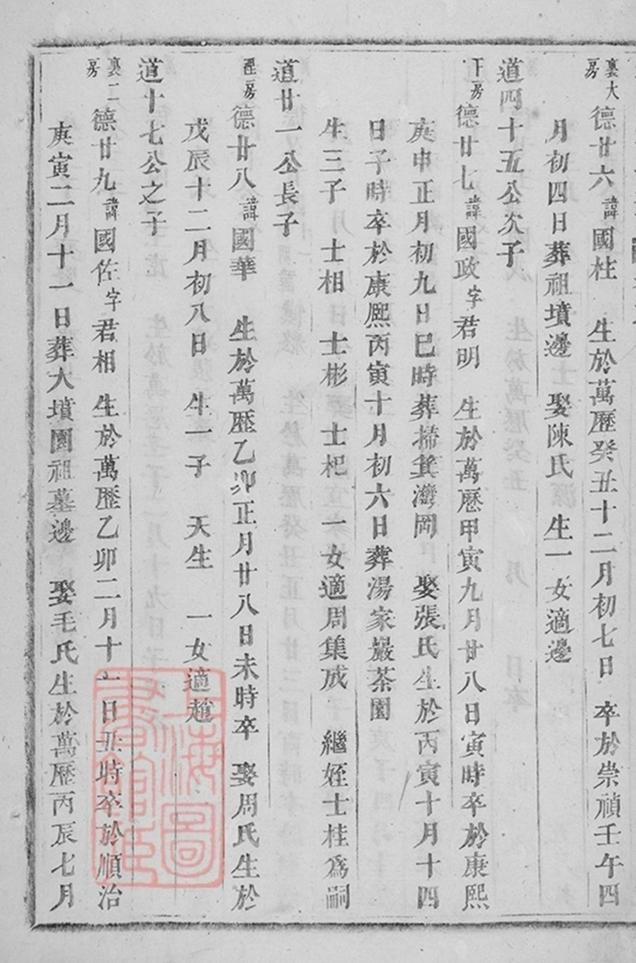 裏大房 德廿六 諱 國柱 生於萬歷癸丑十二月初七日 卒於崇禎壬午四
月初四日葬祖墳邊 娶陳氏 生一女適邊
道四十五公次子
下房 德廿七 諱 國政 字 君明 生於萬歷甲寅九月廿八日寅時卒於康熙
庚申正月初九日巳時葬掃箕灣岡 娶張氏生於丙寅十月十四
日子時卒於康熙丙寅十月初六日葬湯家巖茶園
生三子 士相 士彬 士杞 一女適周集成 繼姪士桂爲嗣
道廿一公長子
德廿八 諱 國華 生於萬歷乙卯正月廿八日未時卒 娶周氏生於
戊辰十二月初八日 生一子 天生 一女適趙
道十七公之子
裏二房 德廿九 諱 國佐 字 君相 生於萬歷乙卯二月十一日丑時卒於順治
庚寅二月十一日葬大墳園祖墓邊 娶毛氏生於萬歷丙辰七月
上海圖書館藏